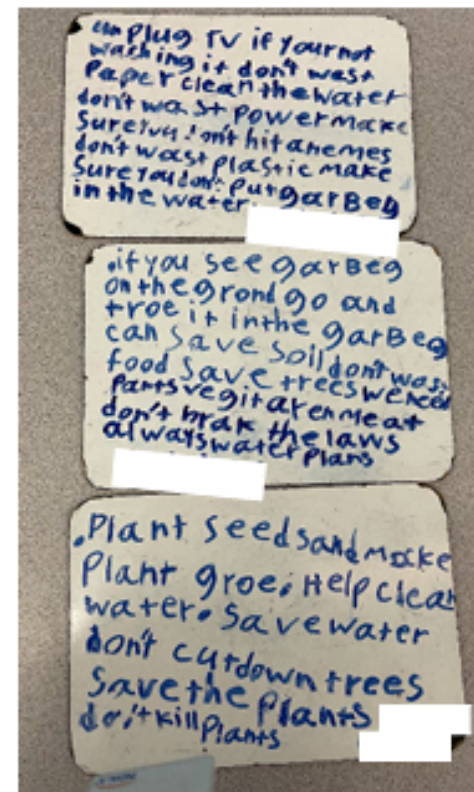 unplug TV if your not
washing it don't wast
Paper clean the water
don't wast power make
Sure you don't hit anemes
don't wast plastic make
Sure you don't put garBeg
in the water.
.if you see garBeg
on the grond go and
troe it in the garBeg
can save soil don't was
food save trees we need
Pants vegitaren meat
don't brak the laws
always water Plans
.Plant seeds and Mocke
Plant groe. Help clean
water. save water
don't cutdown trees
save the Plants
don't kill Plants